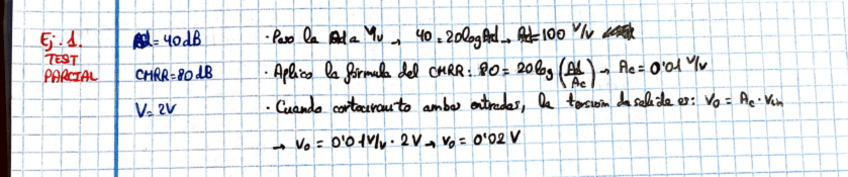 Ej. 1.
TEST
PARCIAL
Ad = 40 dB
CMRR = 80 dB
V = 2V
· Paso la Ad a V/v → 40 = 20 log Ad → Ad = 100 V/v
· Aplico la fórmula del CMRR: 80 = 20 log (Ad/Ac) → Ac = 0'01 V/v
· Cuando cortocircuito ambas entradas, la tensión de salida es: Vo = Ac · Vcm
→ Vo = 0'01 V/v · 2V → Vo = 0'02 V